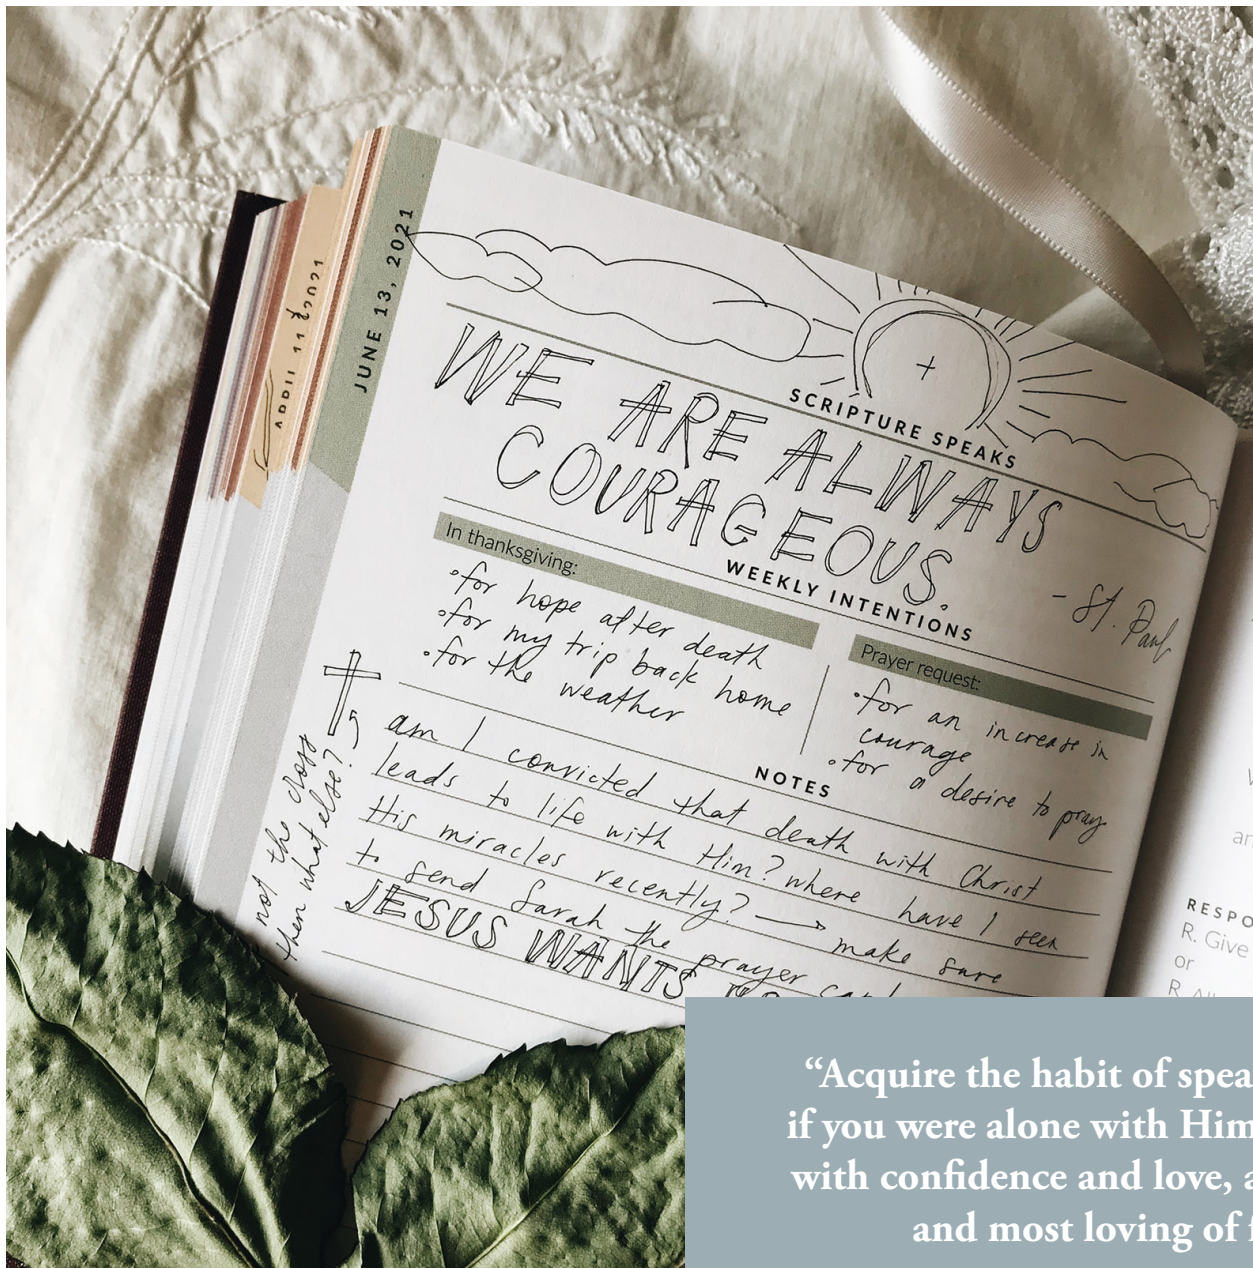 JUNE 13, 2021
2021
SCRIPTURE SPEAKS
WE ARE ALWAYS
COURAGEOUS.
- St. Paul
WEEKLY INTENTIONS
In thanksgiving:
•for hope after death
•for my trip back home
•for the weather
Prayer request:
•for an increase in
courage
•for a desire to pray
NOTES
am I convicted that death with Christ
leads to life with Him? where have I seen
His miracles recently? → make sure
to send Sarah the prayer
JESUS WANTS
not the cross
then what else?
R. Give
or
R.
“Acquire the habit of
if you were alone with Him
with confidence and love,
and most loving of